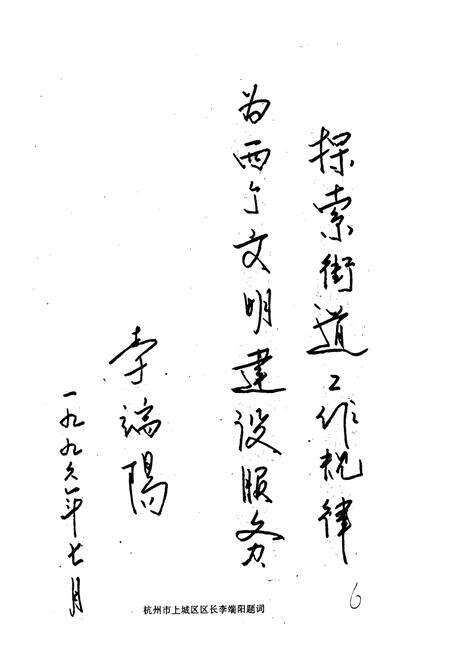 探索街道工作规律
为两个文明建设服务
李端阳
一九九六年七月
杭州市上城区区长李端阳题词
6